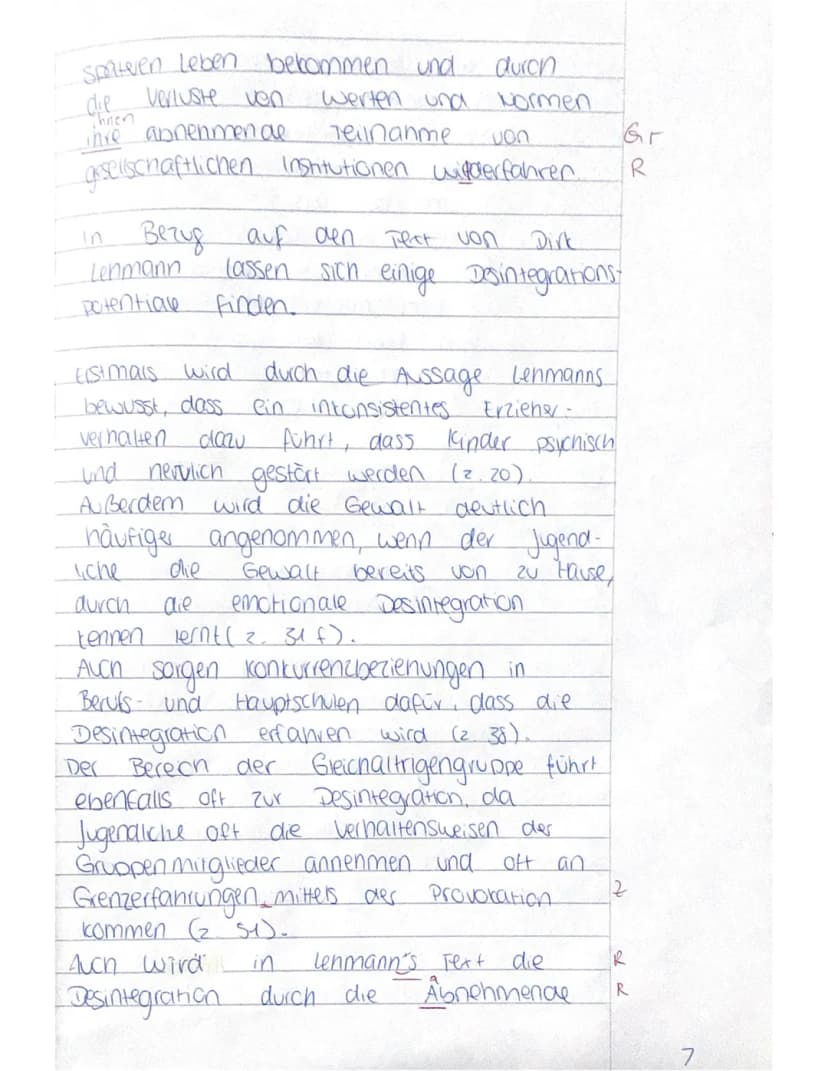 späteren Leben bekommen und durch
die Verluste von Werten und Normen
ihnen
ihre abnehmende Teilnahme von Gr
gesellschaftlichen Institutionen widerfahren. R
in Bezug auf den Text von Dirk
Lehmann lassen sich einige Desintegrations-
potentiale finden.
Erstmals wird durch die Aussage Lehmanns
bewusst, dass ein inkonsistentes Erzieher-
verhalten dazu führt, dass Kinder psychisch
und nervlich gestört werden (z. 20).
Außerdem wird die Gewalt deutlich
häufiger angenommen, wenn der Jugend-
liche die Gewalt bereits von zu Hause,
durch die emotionale Desintegration
kennen lernt (z. 31 f).
Auch sorgen Konkurrenzbeziehungen in
Berufs- und Hauptschulen dafür, dass die
Desintegration erfahren wird (z. 38).
Der Bereich der Gleichaltrigengruppe führt
ebenfalls oft zur Desintegration, da
Jugendliche oft die Verhaltensweisen der
Gruppenmitglieder annehmen und oft an
Grenzerfahrungen mittels der Provokation Z
kommen (z. 51).
Auch wird in Lehmann's Text die R
Desintegration durch die Abnehmende R
7